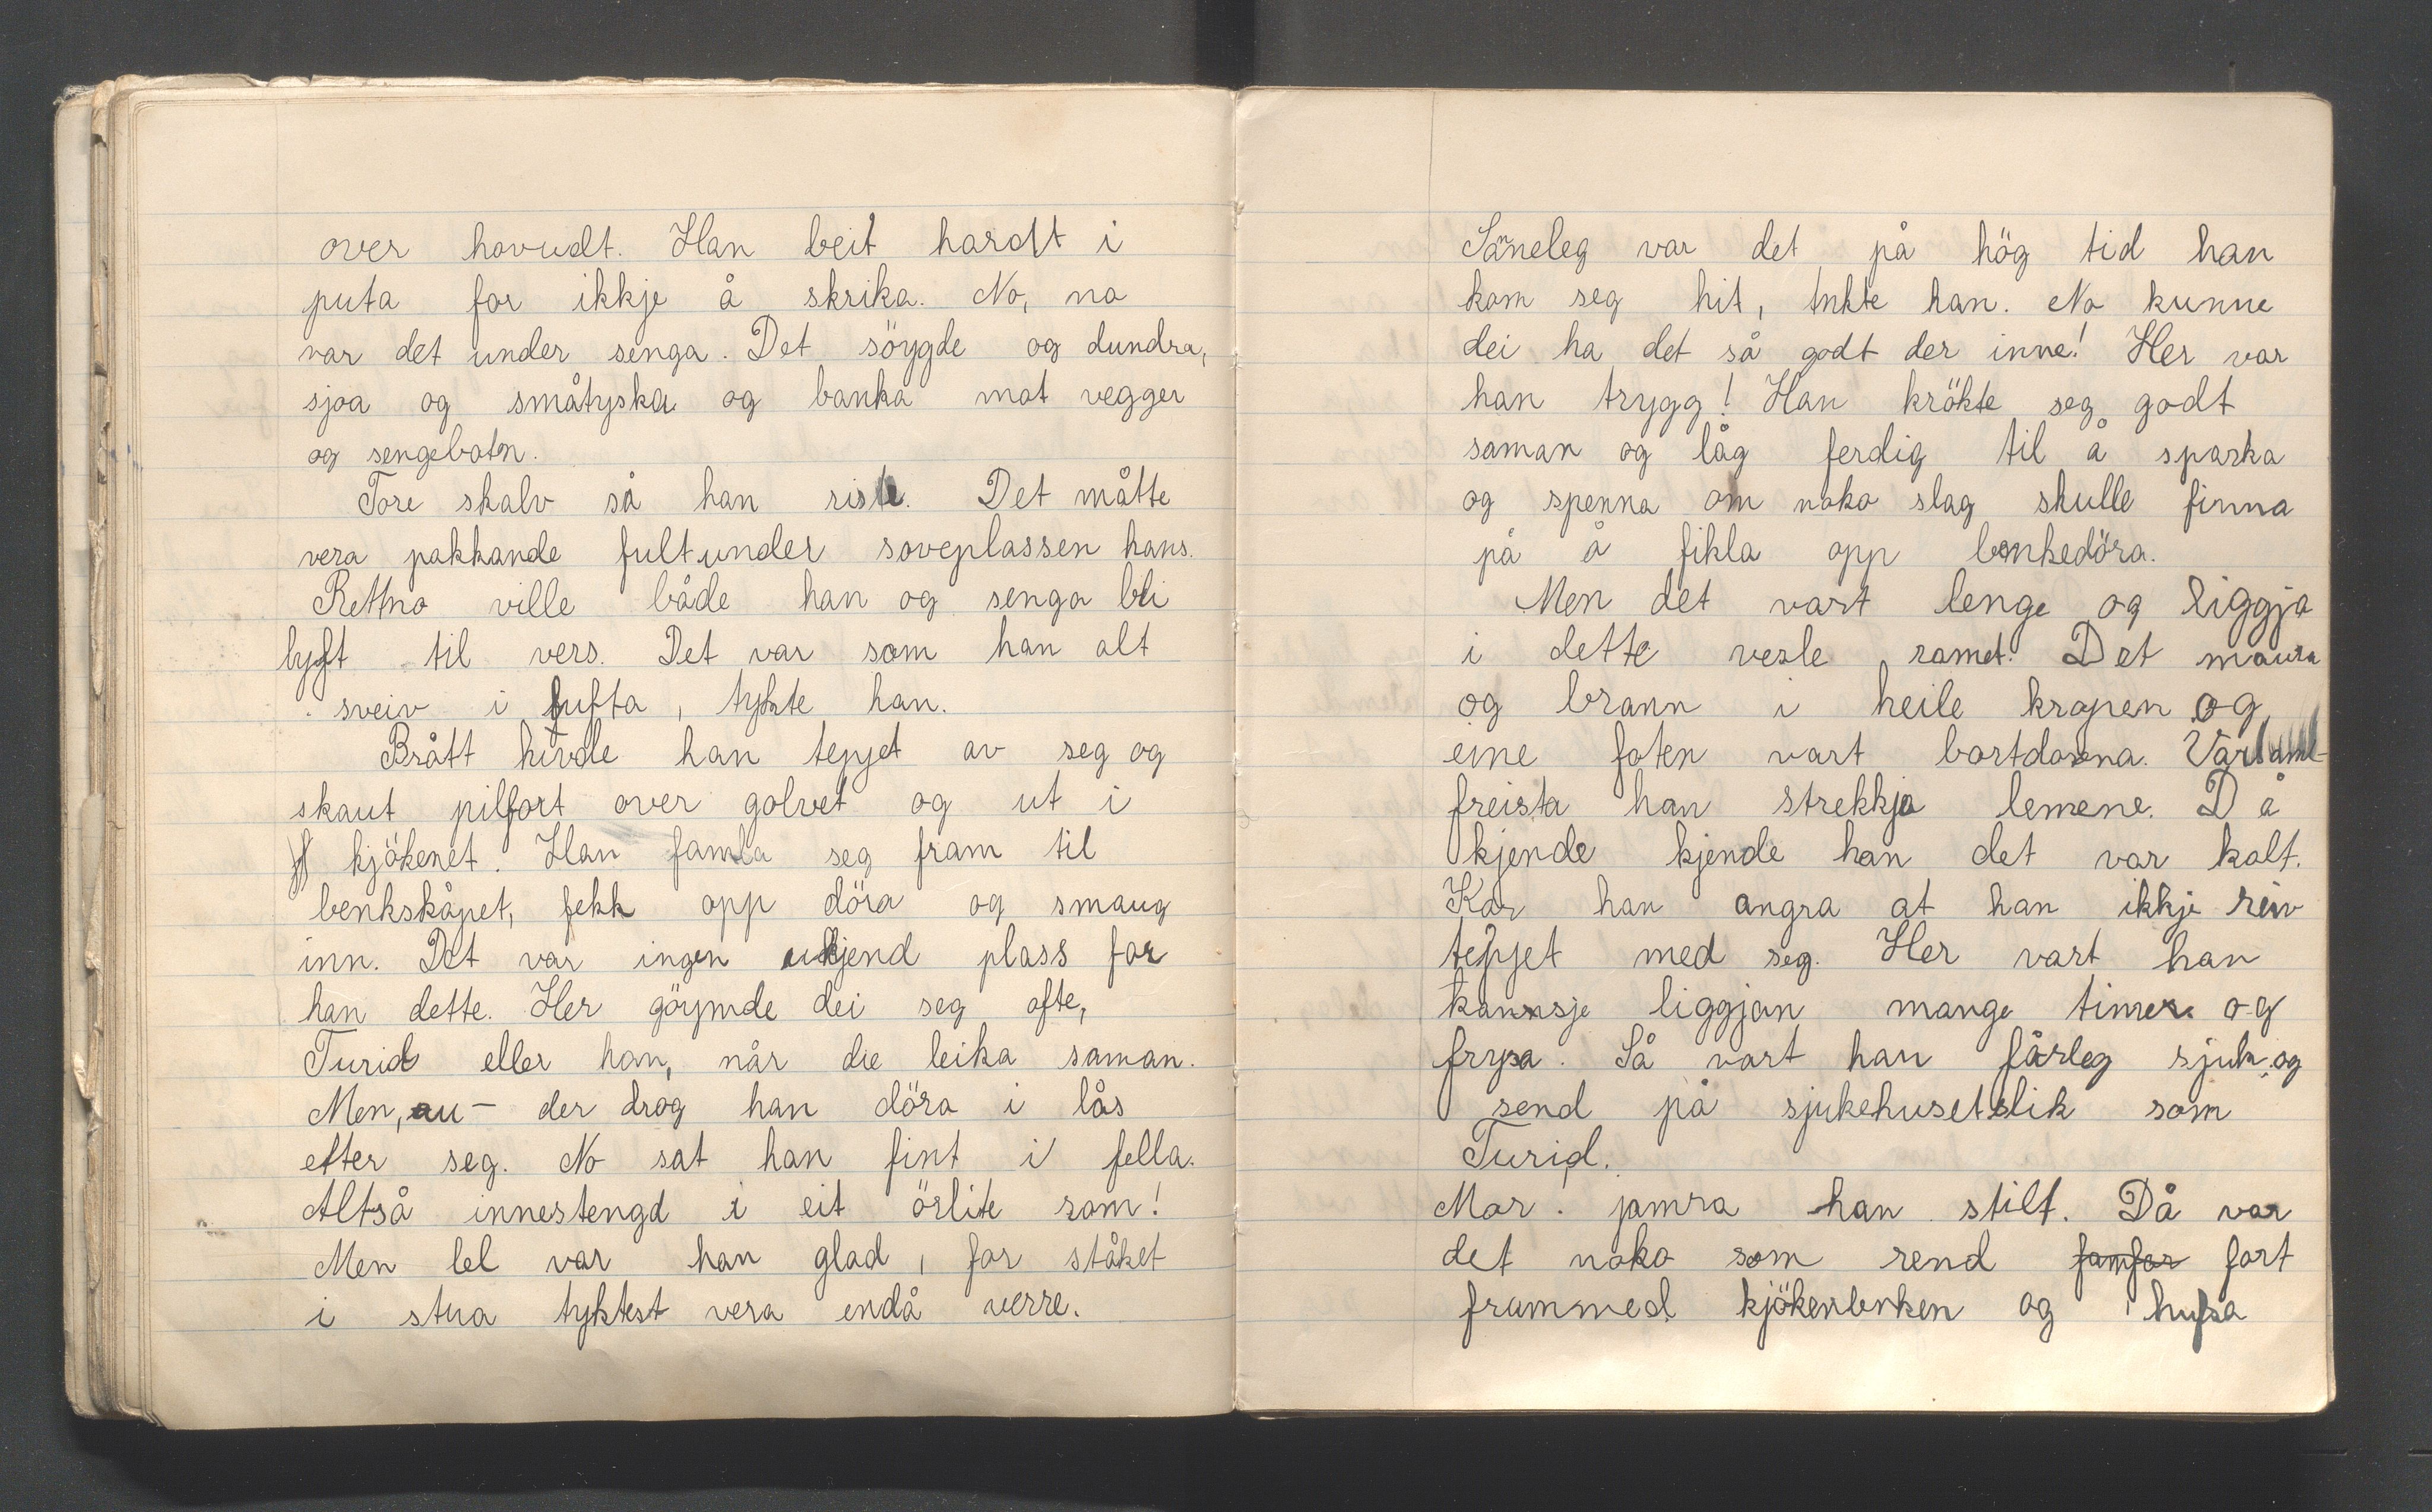 over hovudt. Han beit hardt i
puta for ikkje å skrika. No, no
var det under senga. Det söygde og dundra,
sjoa og småtyska og banka mot vegger
og sengebotn.
Tore skalv så han riste. Det måtte
vera pakkande fult under soveplassen hans.
Rettno ville både han og senga bli
lyft til vers. Det var som han alt
sveiv i lufta, tykte han.
Brått hivde han teppet av seg og
skaut pilfort over golvet og ut i
kjökenet. Han famla seg fram til
benkskåpet, fekk opp döra og smaug
inn. Det var ingen ukjend plass for
han dette. Her göymde dei seg ofte,
Turid eller han, når die leika saman.
Men, au – der drog han döra i lås
etter seg. No sat han fint i fella.
Altså innestengd i eit örlite rom!
Men lel var han glad, for ståket
i stua tyktest vera endå verre.
Såneleg var det på hög tid han
kom seg hit, tnkte han. No kunne
dei ha det så godt der inne! Her var
han trygg! Han krökte seg godt
saman og låg ferdig til å sparka
og spenna om noko slag skulle finna
på å fikla opp benkedöra.
Men det vart lenge og liggja
i dette vesle romet. Det maura
og brann i heile kropen og
eine foten vart bortdovna. Varsaml-
freista han strekkja lemene. Då
kjende kjende han det var kalt.
Kor han angra at han ikkje reiv
teppet med seg. Her vart han
kannsje liggjan mange timer og
frysa. Så vart han fårleg sjuk og
send på sjukehuset slik som
Turid.
Mor. jamra han stilt. Då var
det noko som rend famfor fort
frammed kjökenbnken og hufsa